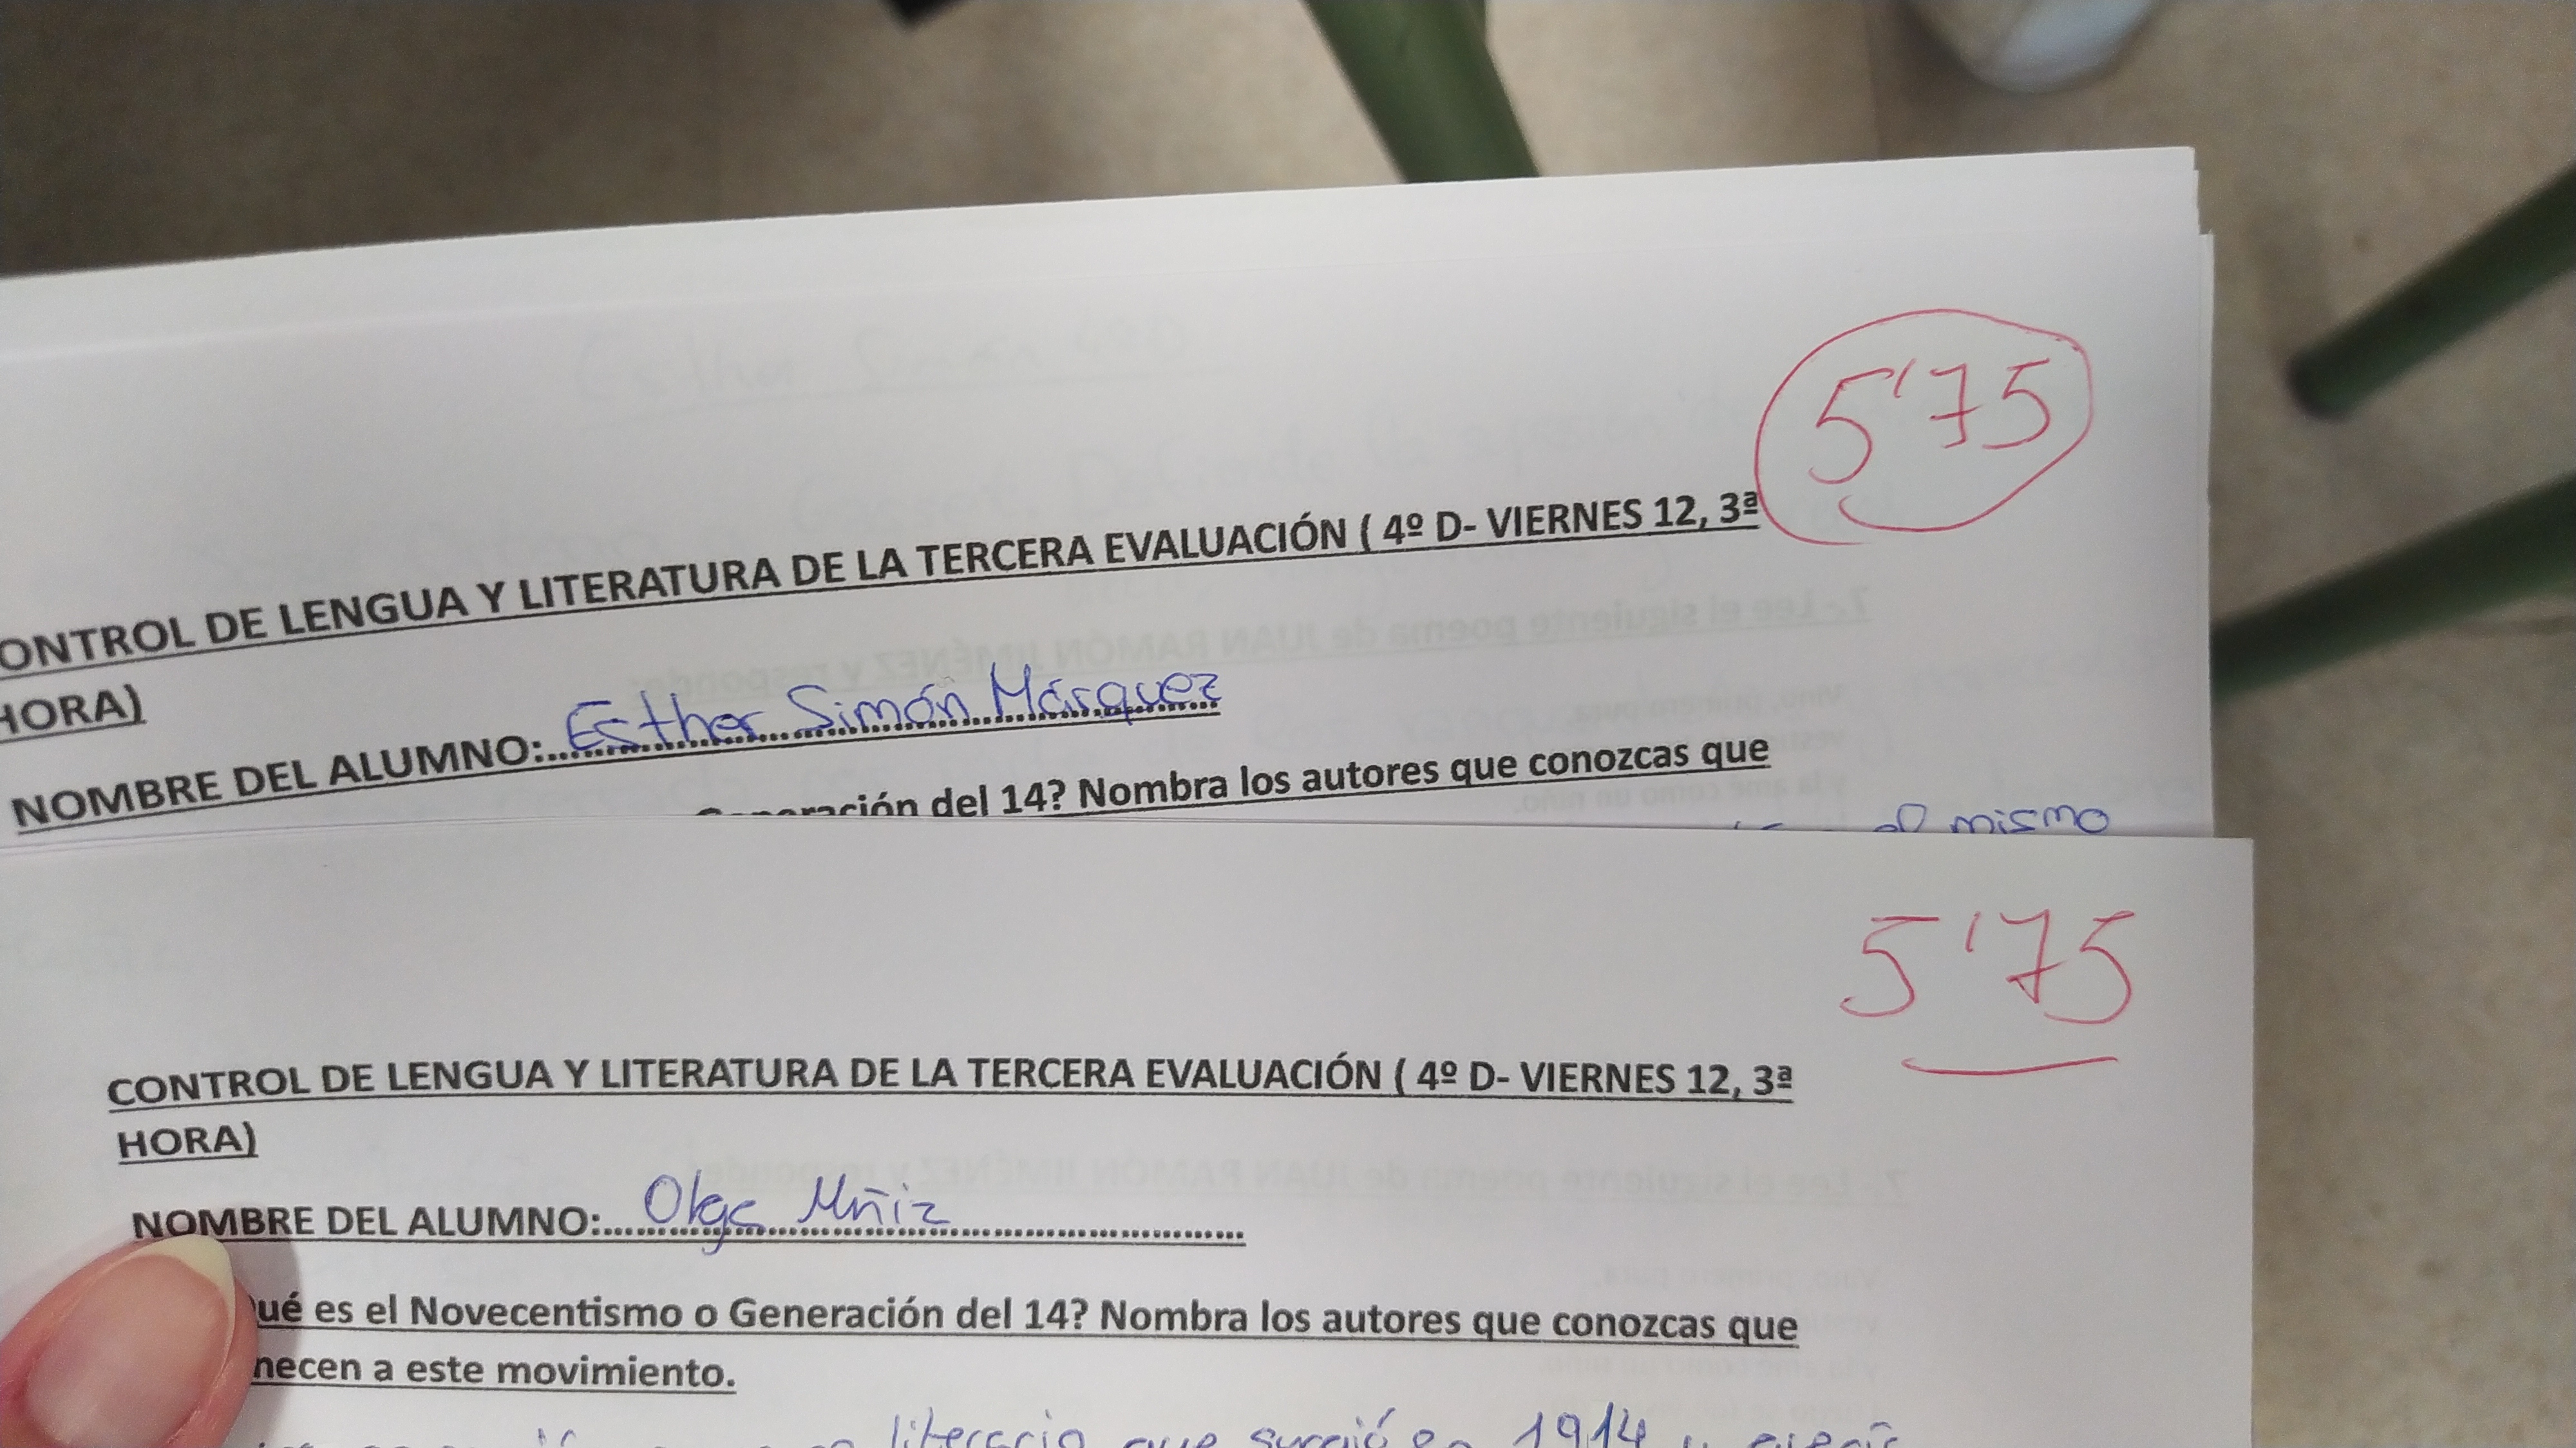 5'75
ONTROL DE LENGUA Y LITERATURA DE LA TERCERA EVALUACIÓN ( 4º D- VIERNES 12, 3ª
HORA)
NOMBRE DEL ALUMNO:.....Esther Simón Márquez
Generación del 14? Nombra los autores que conozcas que
el mismo
5'75
CONTROL DE LENGUA Y LITERATURA DE LA TERCERA EVALUACIÓN ( 4º D- VIERNES 12, 3ª
HORA)
NOMBRE DEL ALUMNO:.....Olga Muñiz.....
ué es el Novecentismo o Generación del 14? Nombra los autores que conozcas que
necen a este movimiento.
literario que surgió en 1914 y